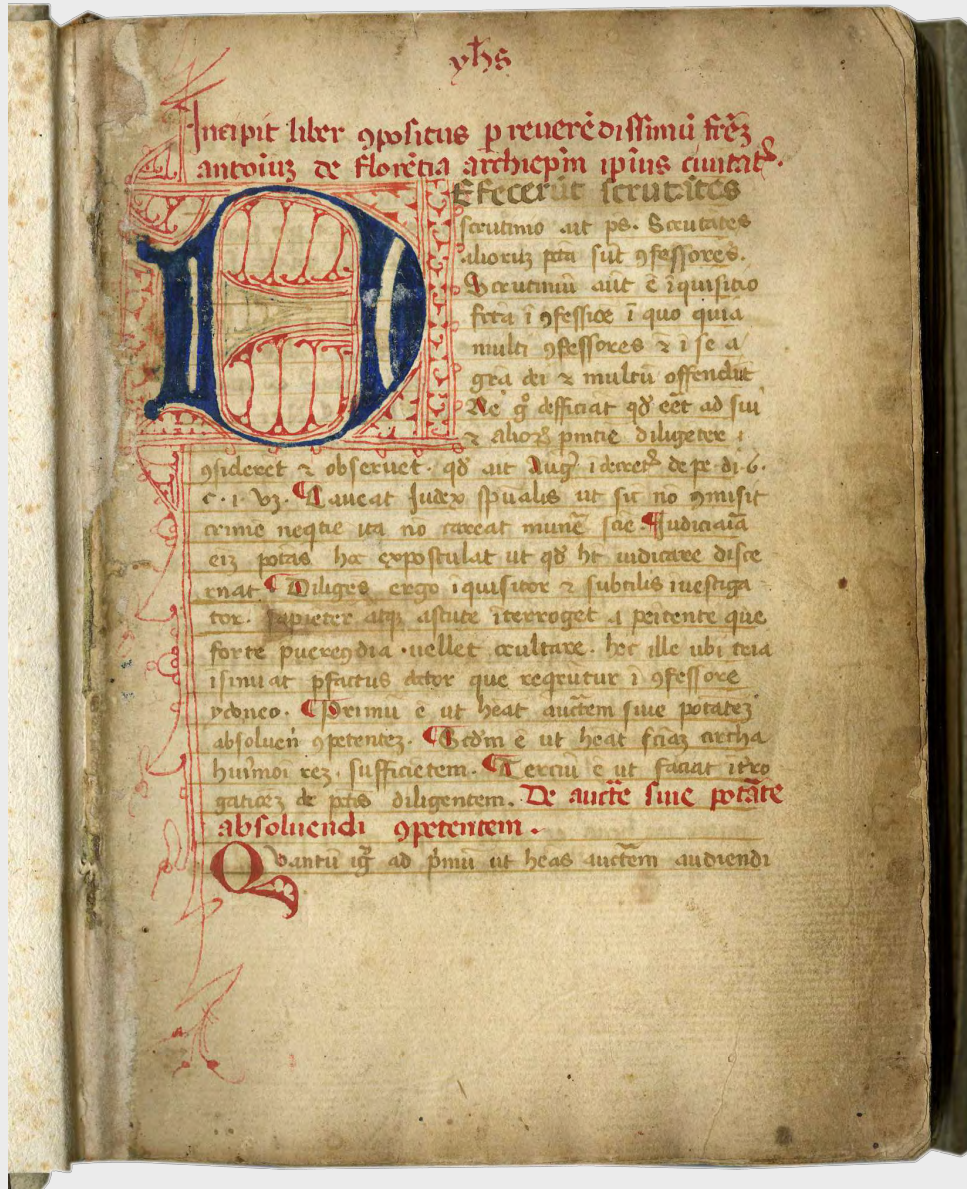 yhs
Incipit liber ꝯpositus p reuerēdissimū frēʒ
antoīuʒ de florētia archiepīm ipīus ciuitat᷒.
DEfecerūt scrutātes
scrutinio ait ps. Scrutātes
alioruʒ pctā sūt ꝯfessores.
Scrutiniū aūt ē īquisitio
fcta ī ꝯfessiōe ī quo quia
multi ꝯfessores ⁊ ī se a
grā dei ⁊ multū offendūt
Ne gͦ deficiāt qđ eēt ad sui
⁊ alioꝝ pnitiē diligēter
ꝯsideret ⁊ obseruet. qđ ait Aug᷒ ī decret᷒ de pe. di. 6.
c. i. vʒ. ¶ Caueat Iudex spūalis ut sic nō ꝯmisit
crimē neqtie ita nō careat munē scīe. ¶ Iudiciaīa
eiʒ potas hoc expostulat ut qđ ht iudicare disce
rnat ¶ Diligēs ergo īquisitor ⁊ subtilis īuestiga
tor. sapiēter atqʒ astute īterroget a peitente que
forte puereꝯdia uellet ocultare. hec ille ubi tria
isinuat pfactus doctor que reqrūtur ī ꝯfessore
ydoneo. ¶ Primū ē ut heat auctem siue potateʒ
absoluen̄ ꝯpetenteʒ. ¶ Scdm ē ut heat sciaʒ circha
huīmōi reʒ sufficiētem. ¶ Terciū ē ut faciat īt̄ro
gatiōeʒ de pctīs diligentem. De aucte siue potāte
absoluendi ꝯpetentem.
Quantū igr̄ ad pmū ut heas auctem audiendi